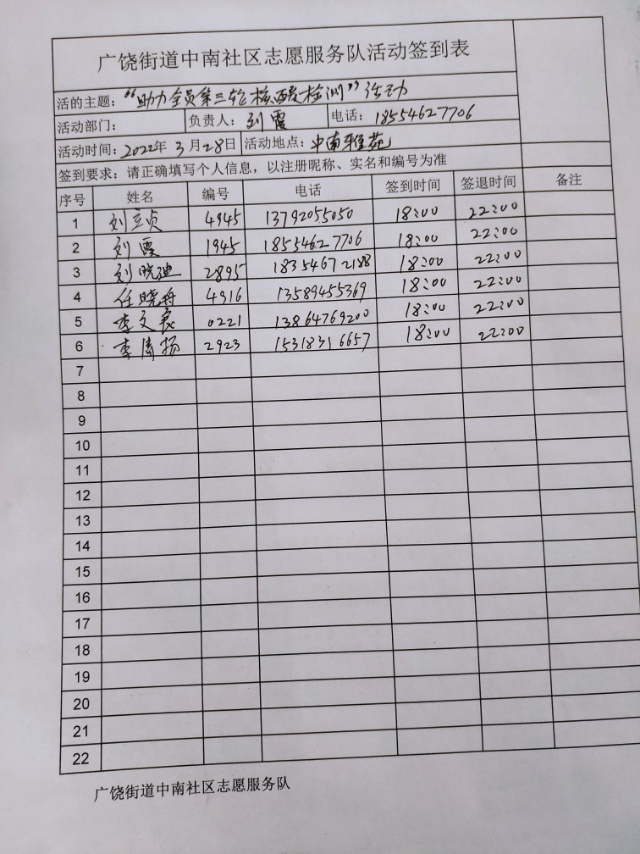 广饶街道中南社区志愿服务队活动签到表
活的主题：“助力全员第三轮核酸检测”活动
活动部门： 负责人：刘霞 电话：18554627706
活动时间：2022年3月28日 活动地点：中南雅苑
签到要求：请正确填写个人信息，以注册昵称、实名和编号为准
序号 姓名 编号 电话 签到时间 签退时间 备注
1 刘立贞 4945 13792055050 18:00 22:00
2 刘霞 1945 18554627706 18:00 22:00
3 刘晓迪 2895 18354672188 18:00 22:00
4 任晓舟 4916 13589455369 18:00 22:00
5 李文良 0221 13864769200 18:00 22:00
6 李清扬 2923 15318316657 18:00 22:00
7
8
9
10
11
12
13
14
15
16
17
18
19
20
21
22
广饶街道中南社区志愿服务队